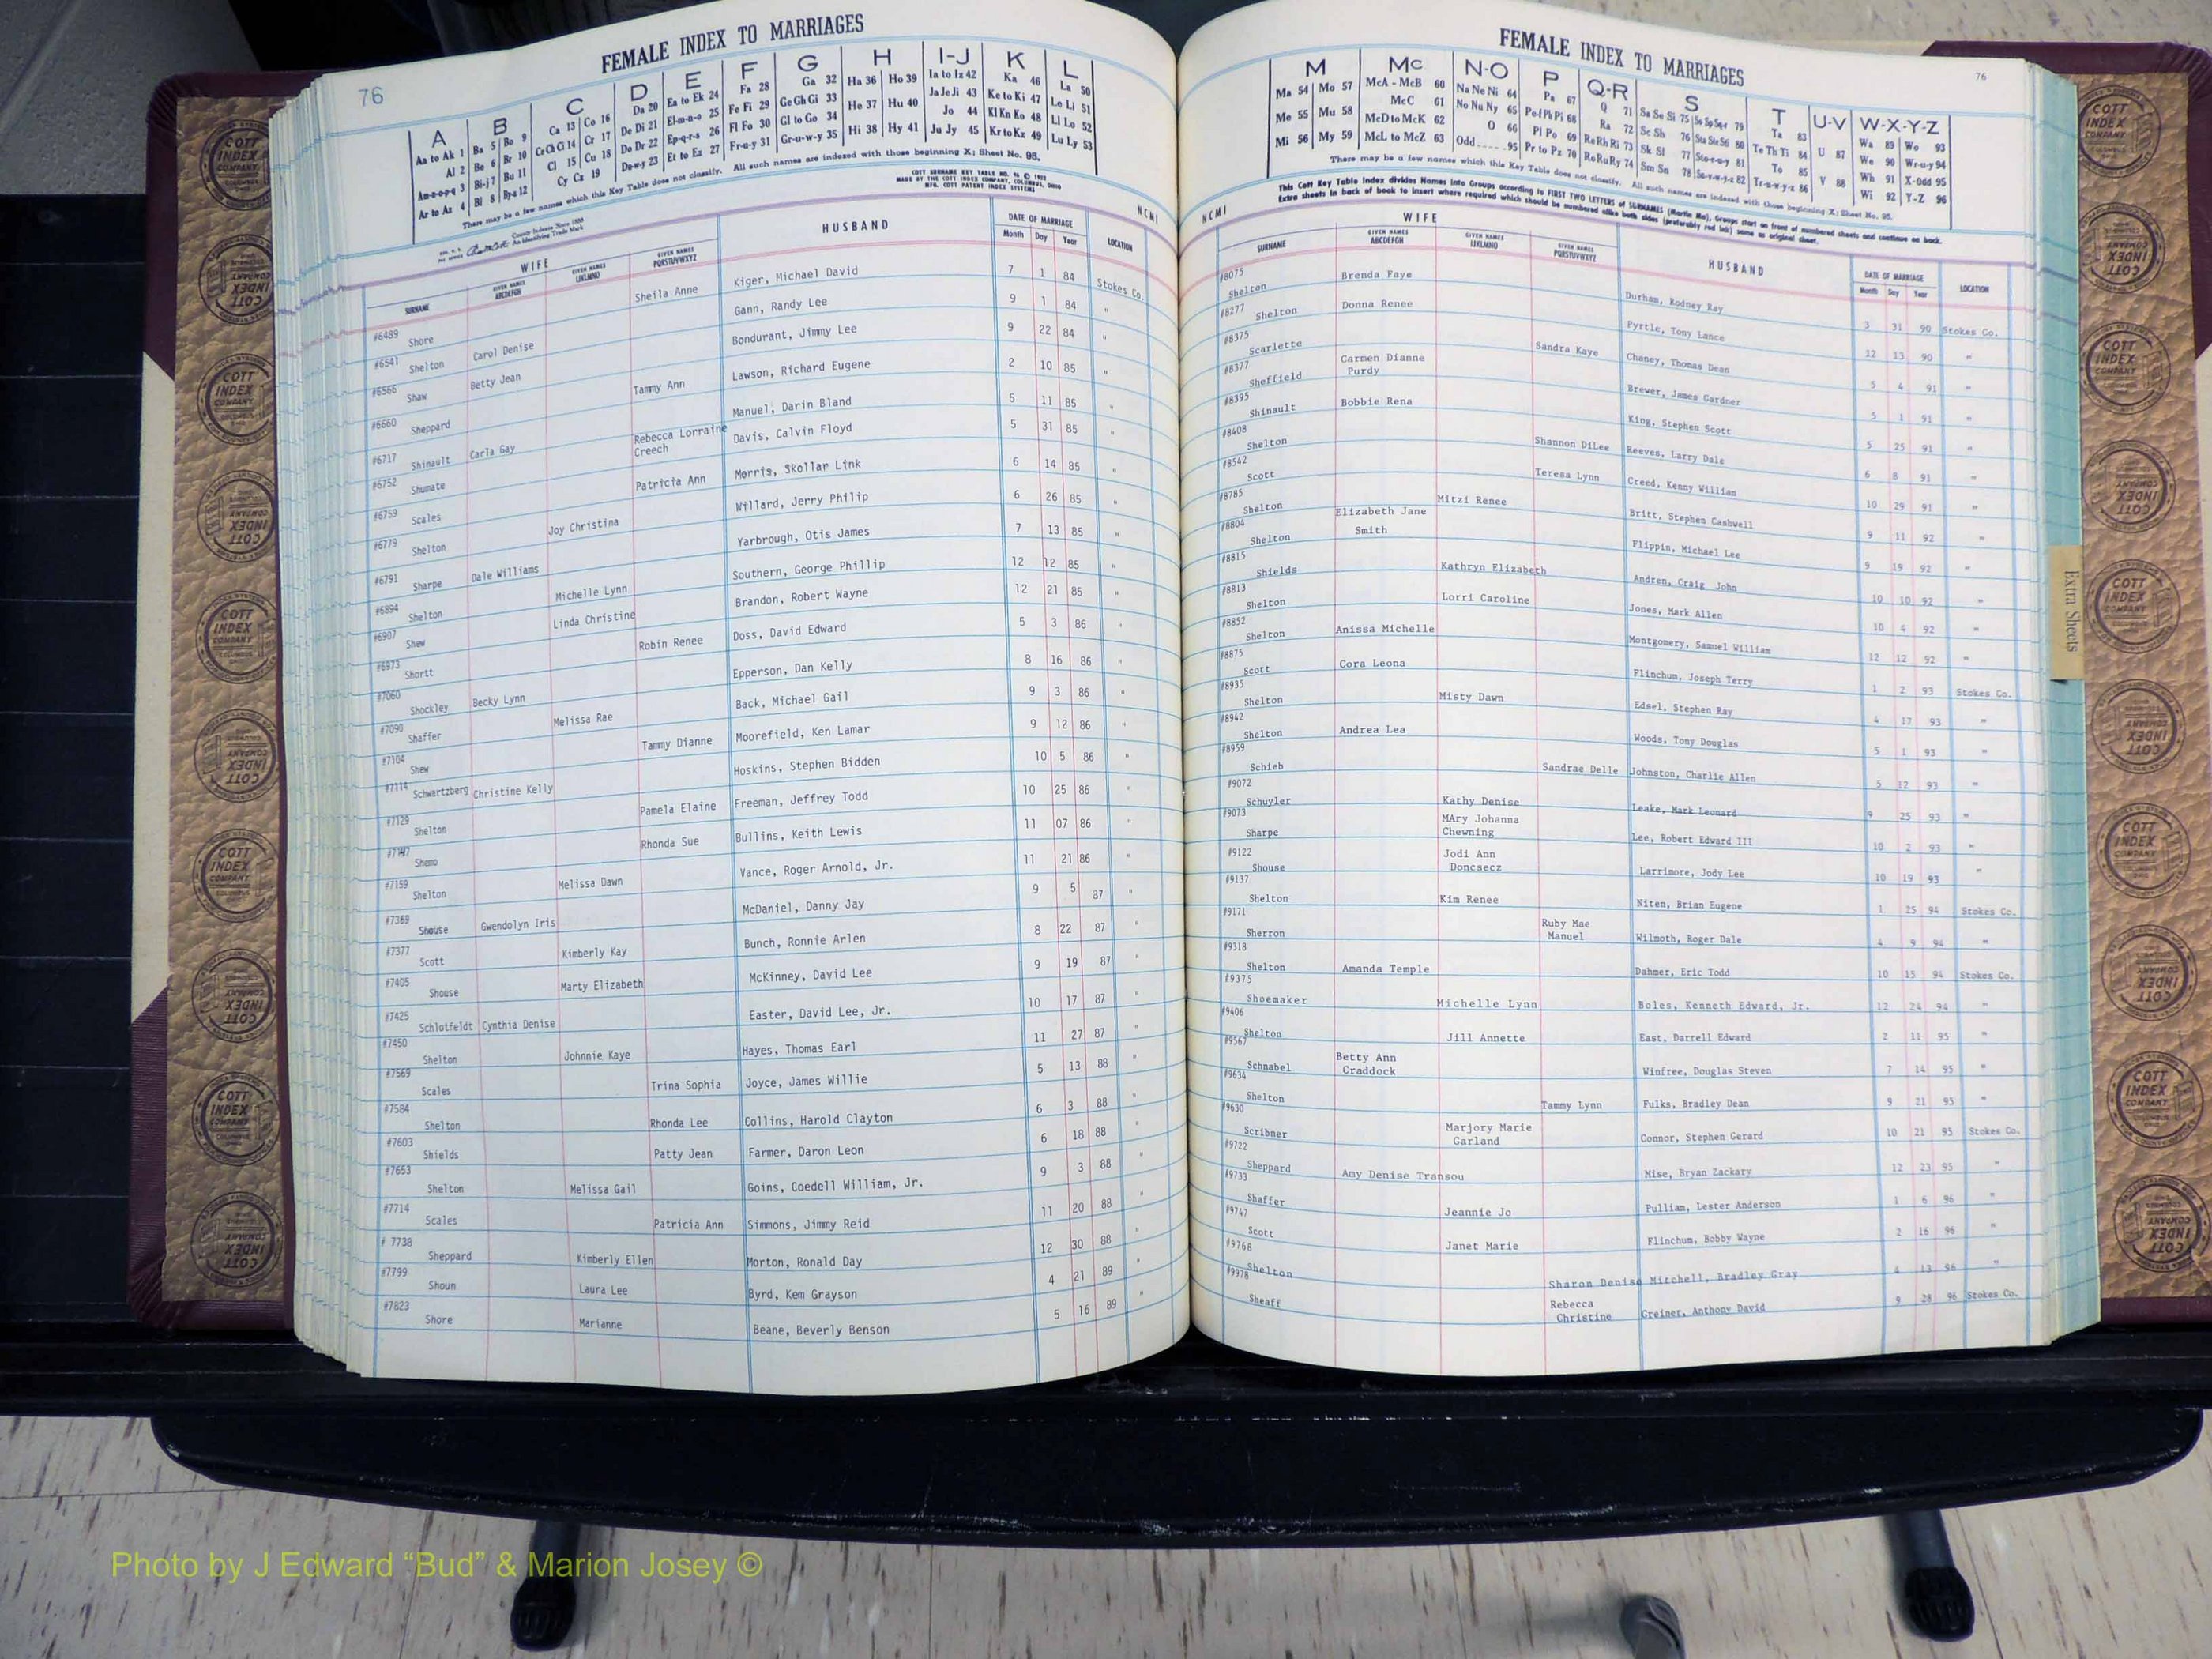 FEMALE INDEX TO MARRIAGES
76
A B C D E F G H I-J K L
Aa to Ak 1 Ba 5 Bo 9 Ca 13 Co 16 Da 20 Ea to Ek 24 Fa 28 Ga 32 Ha 36 Ho 39 Ia to Iz 42 Ka 46 La 50
Al 2 Be 6 Br 10 Ce Ch Ci 14 Cr 17 De Di 21 El-m-n-o 25 Fe Fi 29 Ge Gh Gi 33 He 37 Hu 40 Ja Je Ji 43 Ke to Ki 47 Le Li 51
Am-n-o-p-q 3 Bi-j 7 Bu 11 Cl 15 Cu 18 Do Dr 22 Ep-q-r-s 26 Fl Fo 30 Gl to Go 34 Hi 38 Hy 41 Jo 44 Kl Kn Ko 48 Ll Lo 52
Ar to Az 4 Bl 8 By-z 12 Cy Cz 19 Du-w-y 23 Et to Ez 27 Fr-u-y 31 Gr-u-w-y 35 Ju Jy 45 Kr to Kz 49 Lu Ly 53
There may be a few names which this Key Table does not classify. All such names are indexed with those beginning X; Sheet No. 95.
NCMI
WIFE HUSBAND DATE OF MARRIAGE LOCATION
SURNAME GIVEN NAMES ABCDEFGH GIVEN NAMES IJKLMNO GIVEN NAMES PQRSTUVWXYZ Month Day Year
#6489 Shore Sheila Anne Kiger, Michael David 7 1 84 Stokes Co.
#6541 Shelton Carol Denise Gann, Randy Lee 9 1 84 "
#6566 Shaw Betty Jean Bondurant, Jimmy Lee 9 22 84 "
#6660 Sheppard Tammy Ann Lawson, Richard Eugene 2 10 85 "
#6717 Shinault Carla Gay Manuel, Darin Bland 5 11 85 "
#6752 Shumate Rebecca Lorraine Creech Davis, Calvin Floyd 5 31 85 "
#6759 Scales Patricia Ann Morris, Skollar Link 6 14 85 "
#6779 Shelton Joy Christina Willard, Jerry Philip 6 26 85 "
#6791 Sharpe Dale Williams Yarbrough, Otis James 7 13 85 "
#6894 Shelton Michelle Lynn Southern, George Phillip 12 12 85 "
#6907 Shew Linda Christine Brandon, Robert Wayne 12 21 85 "
#6973 Shortt Robin Renee Doss, David Edward 5 3 86 "
#7060 Shockley Becky Lynn Epperson, Dan Kelly 8 16 86 "
#7090 Shaffer Melissa Rae Back, Michael Gail 9 3 86 "
#7104 Shew Tammy Dianne Moorefield, Ken Lamar 9 12 86 "
#7114 Schwartzberg Christine Kelly Hoskins, Stephen Bidden 10 5 86 "
#7129 Shelton Pamela Elaine Freeman, Jeffrey Todd 10 25 86 "
Shemo Rhonda Sue Bullins, Keith Lewis 11 07 86 "
#7159 Shelton Melissa Dawn Vance, Roger Arnold, Jr. 11 21 86 "
#7369 Shouse Gwendolyn Iris McDaniel, Danny Jay 9 5 87 "
#7377 Scott Kimberly Kay Bunch, Ronnie Arlen 8 22 87 "
#7405 Shouse Marty Elizabeth McKinney, David Lee 9 19 87 "
#7425 Schlotfeldt Cynthia Denise Easter, David Lee, Jr. 10 17 87 "
#7450 Shelton Johnnie Kaye Hayes, Thomas Earl 11 27 87 "
#7569 Scales Trina Sophia Joyce, James Willie 5 13 88 "
#7584 Shelton Rhonda Lee Collins, Harold Clayton 6 3 88 "
#7603 Shields Patty Jean Farmer, Daron Leon 6 18 88 "
#7653 Shelton Melissa Gail Goins, Coedell William, Jr. 9 3 88 "
#7714 Scales Patricia Ann Simmons, Jimmy Reid 11 20 88 "
# 7738 Sheppard Kimberly Ellen Morton, Ronald Day 12 30 88 "
#7799 Shoun Laura Lee Byrd, Kem Grayson 4 21 89 "
#7823 Shore Marianne Beane, Beverly Benson 5 16 89 "
FEMALE INDEX TO MARRIAGES
76
M Mc N-O P Q-R S T U-V W-X-Y-Z
Ma 54 Mo 57 McA - McB 60 Na Ne Ni 64 Pa 67 Q 71 Sa Se Si 75 So Sp Sq-r 79 Ta 83 U 87 Wa 89 Wo 93
Me 55 Mu 58 McC 61 No Nu Ny 65 Pe-f Ph Pi 68 Ra 72 Sc Sh 76 Sta Ste Sti 80 Te Th Ti 84 V 88 We 90 Wr-u-y 94
Mi 56 My 59 McD to McK 62 O 66 Pl Po 69 Re Rh Ri 73 Sk Sl 77 Sto-r-u-y 81 To 85 Wh 91 X-Odd 95
McL to McZ 63 Odd......95 Pr to Pz 70 Ro Ru Ry 74 Sm Sn 78 Su-v-w-y-z 82 Tr-u-w-y-z 86 Wi 92 Y-Z 96
There may be a few names which this Key Table does not classify. All such names are indexed with those beginning X; Sheet No. 95.
This Cott Key Table Index divides Names into Groups according to FIRST TWO LETTERS of SURNAMES (Martin Ma). Groups start on front of numbered sheets and continue on back.
Extra sheets in back of book to insert where required which should be numbered alike both sides (preferably red ink) same as original sheet.
NCMI
WIFE HUSBAND DATE OF MARRIAGE LOCATION
SURNAME GIVEN NAMES ABCDEFGH GIVEN NAMES IJKLMNO GIVEN NAMES PQRSTUVWXYZ Month Day Year
#8075 Shelton Brenda Faye Durham, Rodney Ray 3 31 90 Stokes Co.
#8277 Shelton Donna Renee Pyrtle, Tony Lance 12 13 90 "
#8375 Scarlette Sandra Kaye Chaney, Thomas Dean 5 4 91 "
#8377 Sheffield Carmen Dianne Purdy Brewer, James Gardner 5 1 91 "
#8395 Shinault Bobbie Rena King, Stephen Scott 5 25 91 "
#8408 Shelton Shannon DiLee Reeves, Larry Dale 6 8 91 "
#8542 Scott Teresa Lynn Creed, Kenny William 10 29 91 "
#8785 Shelton Mitzi Renee Britt, Stephen Cashwell 9 11 92 "
#8804 Shelton Elizabeth Jane Smith Flippin, Michael Lee 9 19 92 "
#8815 Shields Kathryn Elizabeth Andren, Craig John 10 10 92 "
#8813 Shelton Lorri Caroline Jones, Mark Allen 10 4 92 "
#8852 Shelton Anissa Michelle Montgomery, Samuel William 12 12 92 "
#8875 Scott Cora Leona Flinchum, Joseph Terry 1 2 93 Stokes Co.
#8935 Shelton Misty Dawn Edsel, Stephen Ray 4 17 93 "
#8942 Shelton Andrea Lea Woods, Tony Douglas 5 1 93 "
#8959 Schieb Sandrae Delle Johnston, Charlie Allen 5 12 93 "
#9072 Schuyler Kathy Denise Leake, Mark Leonard 9 25 93 "
#9073 Sharpe MAry Johanna Chewning Lee, Robert Edward III 10 2 93 "
#9122 Shouse Jodi Ann Doncsecz Larrimore, Jody Lee 10 19 93 "
#9137 Shelton Kim Renee Niten, Brian Eugene 1 25 94 Stokes Co.
#9171 Sherron Ruby Mae Manuel Wilmoth, Roger Dale 4 9 94 "
#9318 Shelton Amanda Temple Dahmer, Eric Todd 10 15 94 Stokes Co.
#9375 Shoemaker Michelle Lynn Boles, Kenneth Edward, Jr. 12 24 94 "
#9406 Shelton Jill Annette East, Darrell Edward 2 11 95 "
#9567 Schnabel Betty Ann Craddock Winfree, Douglas Steven 7 14 95 "
#9634 Shelton Tammy Lynn Fulks, Bradley Dean 9 21 95 "
#9630 Scribner Marjory Marie Garland Connor, Stephen Gerard 10 21 95 Stokes Co.
#9722 Sheppard Amy Denise Transou Mise, Bryan Zackary 12 23 95 "
#9733 Shaffer Jeannie Jo Pulliam, Lester Anderson 1 6 96 "
#9747 Scott Janet Marie Flinchum, Bobby Wayne 2 16 96 "
#9768 Shelton Sharon Denise Mitchell, Bradley Gray 4 13 96 "
#9978 Sheaff Rebecca Christine Greiner, Anthony David 9 28 96 Stokes Co.
Extra Sheets
COTT INDEX COMPANY
Photo by J Edward “Bud” & Marion Josey ©